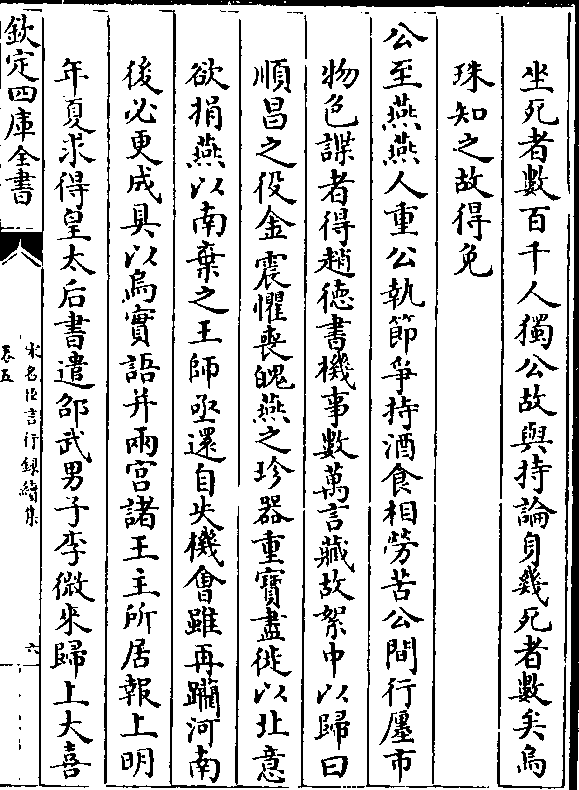 坐死者數百千人獨公故與持論自幾死者數矣烏
珠知之故得免
公至燕燕人重公執節爭持酒食相勞苦公間行廛市
物色諜者得趙德書機事數萬言藏故絮中以歸曰
順昌之役金震懼喪魄燕之珍器重寳盡徙以北意
欲捐燕以南棄之王師亟還自失機會雖再躪河南
後必更成具以烏實語并兩宮諸王主所居報上明
年夏求得皇太后書遣邵武男子李微來歸上大喜
欽定四庫全書
宋名臣言行録續集
卷五
六